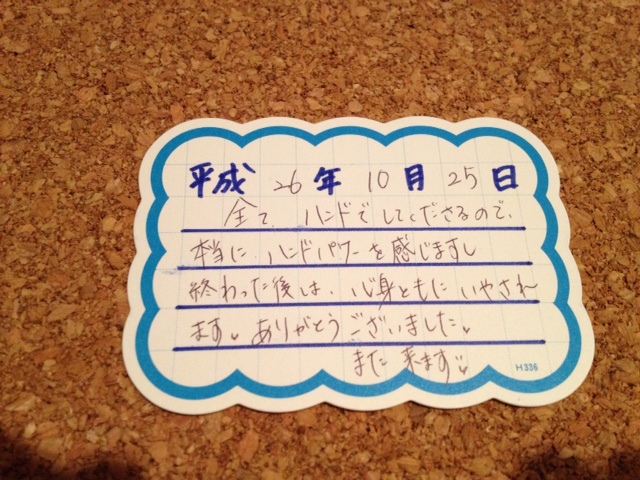 平成 26 年 10 月 25 日
全て ハンドでしてくださるので、
本当に ハンドパワーを感じますし
終わった後は、心身ともにいやされ
ます。ありがとうございました。
また来ます
H336